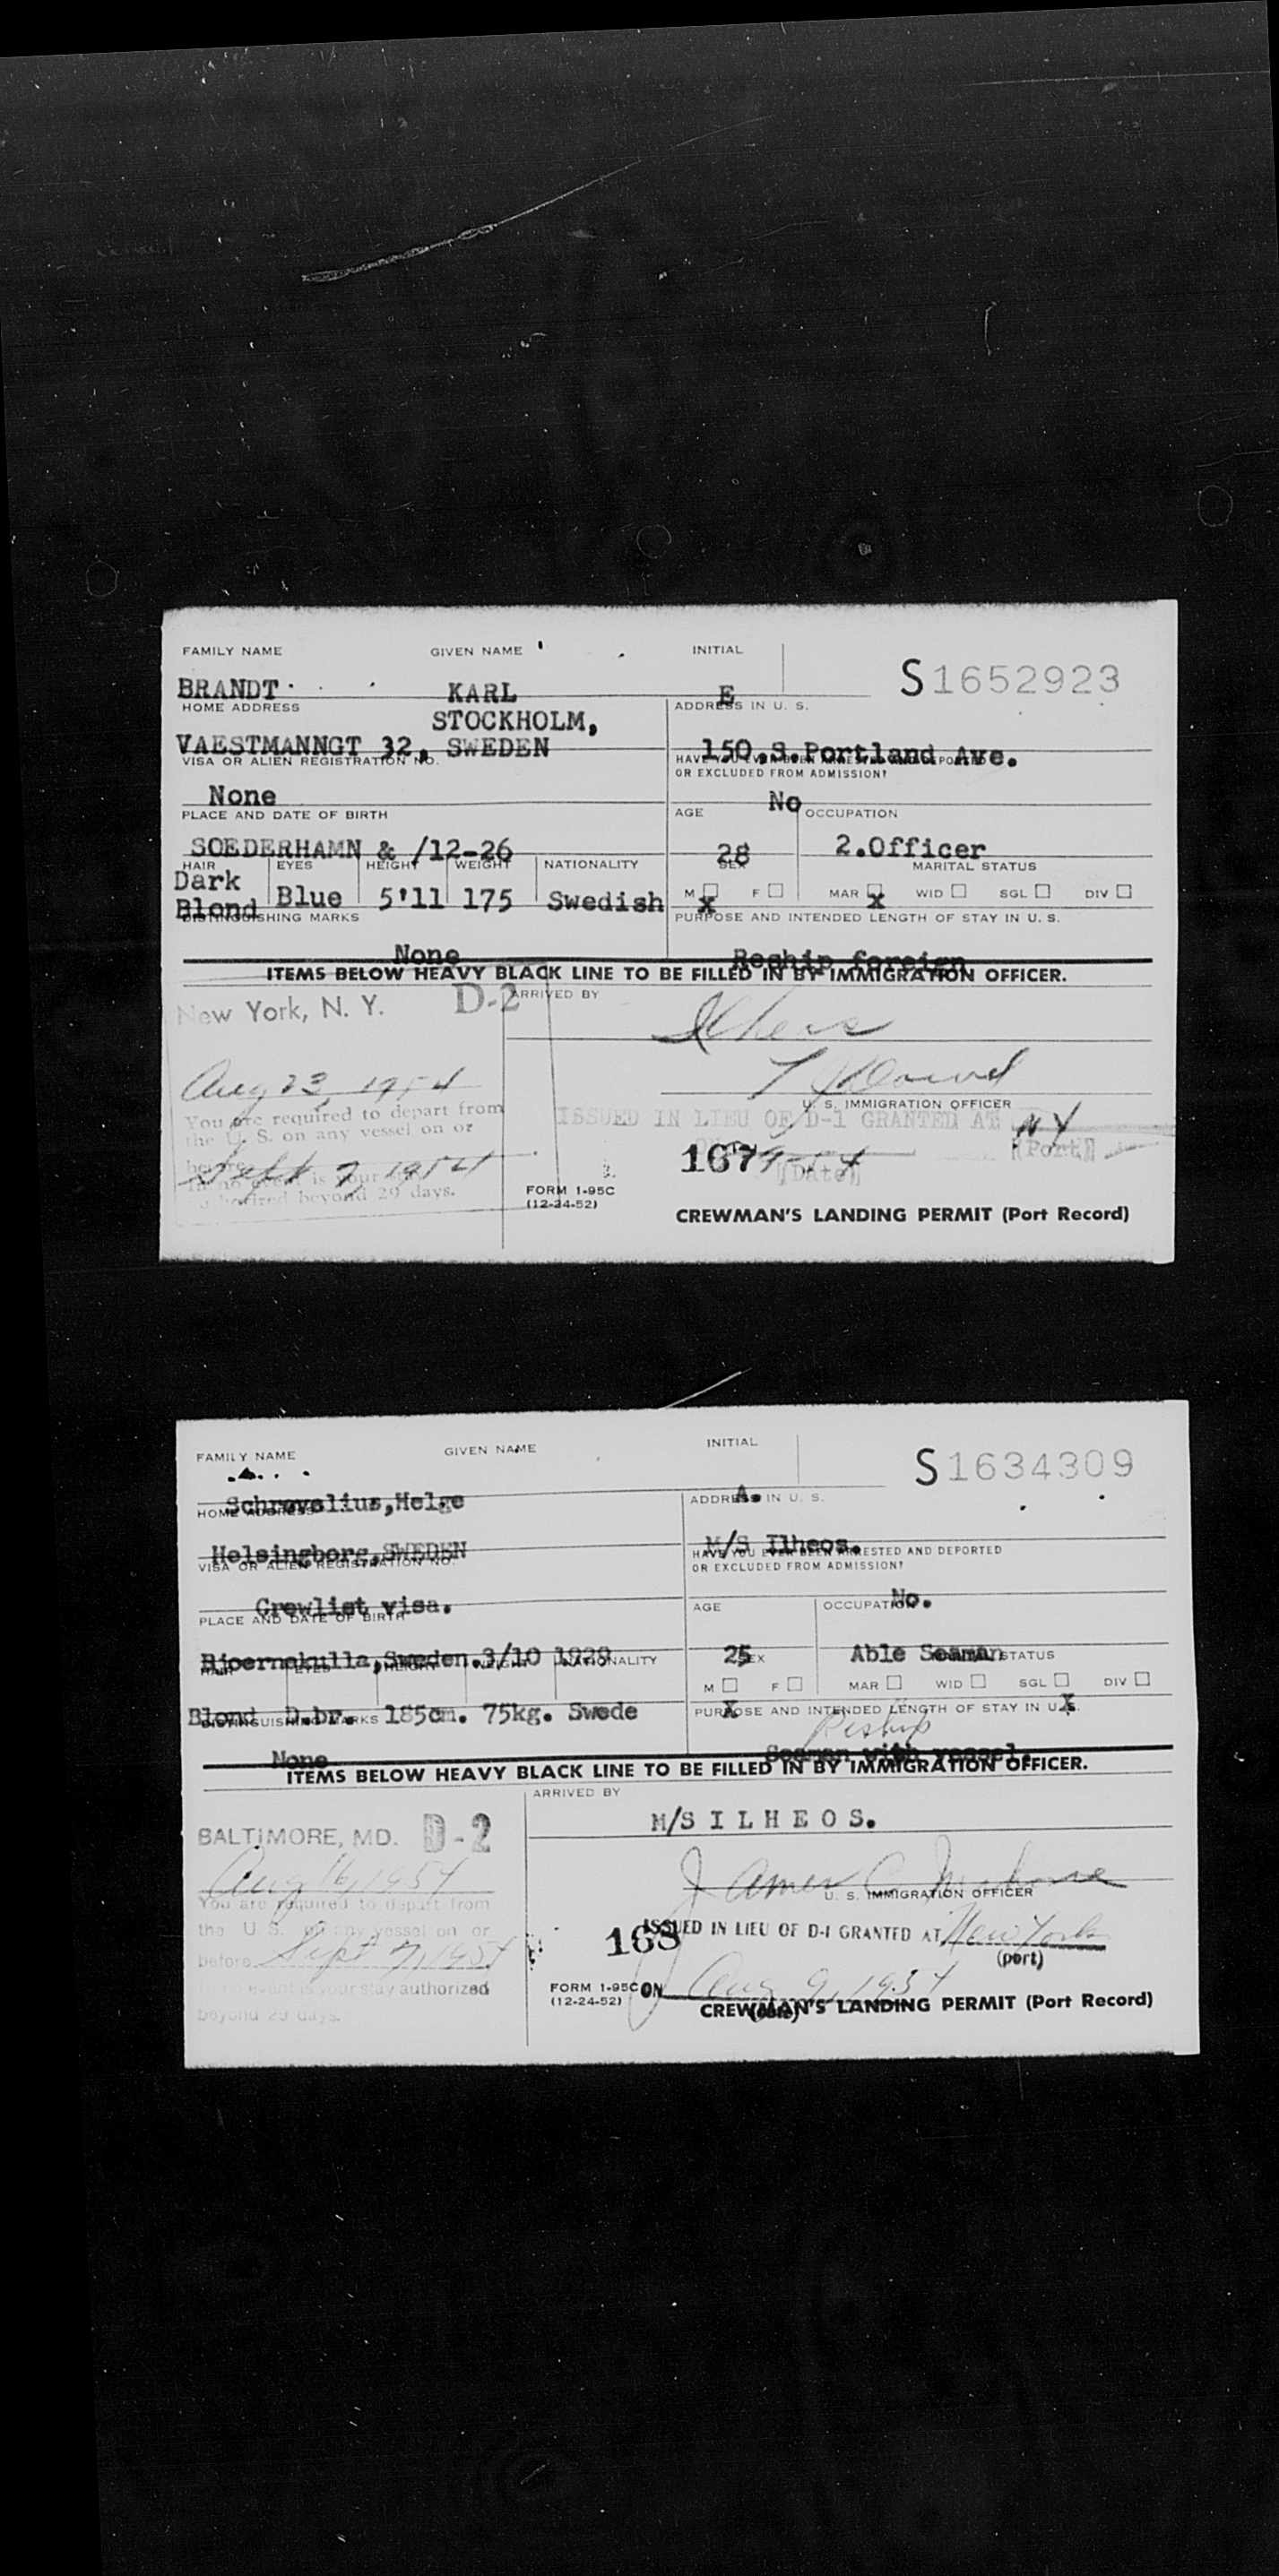 FAMILY NAME GIVEN NAME INITIAL
S1652923
BRANDT KARL E
HOME ADDRESS ADDRESS IN U. S.
STOCKHOLM,
VAESTMANNGT 32, SWEDEN 150.S.Portland Ave.
VISA OR ALIEN REGISTRATION NO. HAVE YOU EVER BEEN ARRESTED AND DEPORTED
OR EXCLUDED FROM ADMISSION?
None No
PLACE AND DATE OF BIRTH AGE OCCUPATION
SOEDERHAMN & /12-26 28 2.Officer
HAIR EYES HEIGHT WEIGHT NATIONALITY SEX MARITAL STATUS
Dark
Blond Blue 5'11 175 Swedish M F MAR WID SGL DIV
X X
DISTINGUISHING MARKS PURPOSE AND INTENDED LENGTH OF STAY IN U. S.
None Reship foreign
ITEMS BELOW HEAVY BLACK LINE TO BE FILLED IN BY IMMIGRATION OFFICER.
New York, N. Y. D-2 ARRIVED BY
Aug 23, 1954
U. S. IMMIGRATION OFFICER
You are required to depart from
the U. S. on any vessel on or
before
Sept 7, 1954
In no event is your
authorized beyond 29 days.
ISSUED IN LIEU OF D-1 GRANTED AT NY
(Port)
167
(Date)
FORM I-95C
(12-24-52)
CREWMAN'S LANDING PERMIT (Port Record)
FAMILY NAME GIVEN NAME INITIAL
S1634309
Schrevelius,Helge A.
HOME ADDRESS ADDRESS IN U. S.
Helsingborg,SWEDEN M/S Ilheos.
VISA OR ALIEN REGISTRATION NO. HAVE YOU EVER BEEN ARRESTED AND DEPORTED
OR EXCLUDED FROM ADMISSION?
Crewlist visa. No.
PLACE AND DATE OF BIRTH AGE OCCUPATION
Bjoernekulla,Sweden.3/10 1929 25 Able Seaman
HAIR EYES HEIGHT WEIGHT NATIONALITY SEX MARITAL STATUS
M F MAR WID SGL DIV
Blond D.br. 185cm. 75kg. Swede X X
DISTINGUISHING MARKS PURPOSE AND INTENDED LENGTH OF STAY IN U. S.
Reship
None Seaman with vessel.
ITEMS BELOW HEAVY BLACK LINE TO BE FILLED IN BY IMMIGRATION OFFICER.
ARRIVED BY
BALTIMORE, MD. D-2 M/S I L H E O S.
Aug 16, 1954
James C
U. S. IMMIGRATION OFFICER
You are required to depart from
the U. S. on any vessel on or
before Sept 7, 1954
In no event is your stay authorized
beyond 29 days.
168 ISSUED IN LIEU OF D-1 GRANTED AT New York
(port)
FORM I-95C ON Aug 9, 1954
(12-24-52)
(date)
CREWMAN'S LANDING PERMIT (Port Record)